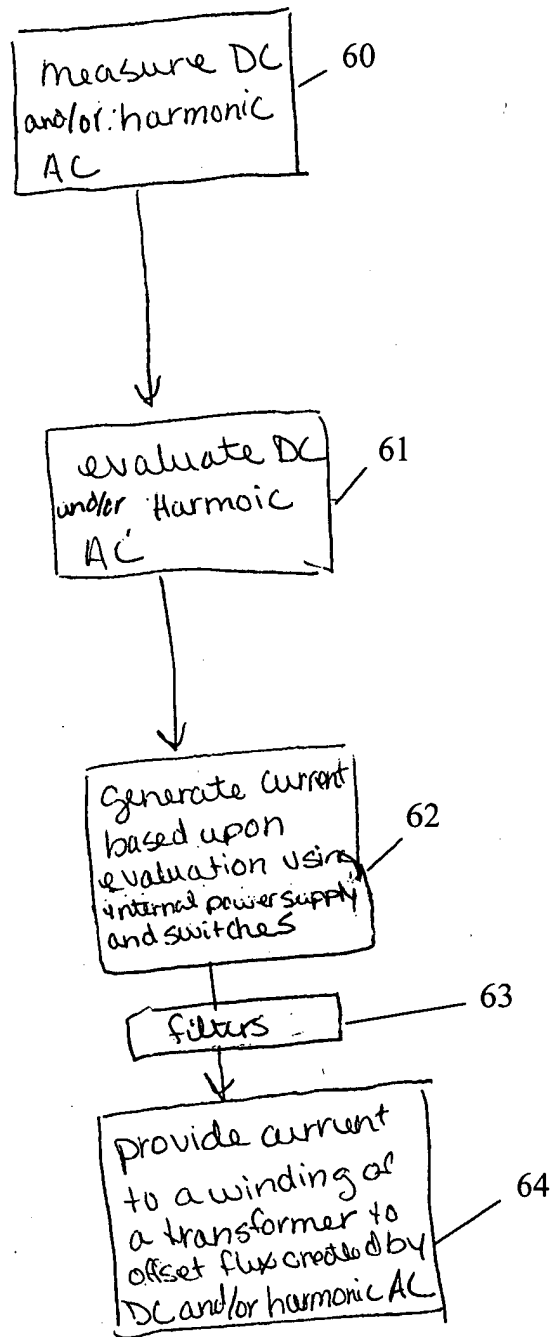 measure DC
and/or harmonic
AC
60
evaluate DC
and/or Harmoic
AC
61
generate current
based upon
evaluation using
internal power supply
and switches
62
filters
63
provide current
to a winding of
a transformer to
offset flux created by
DC and/or harmonic AC
64